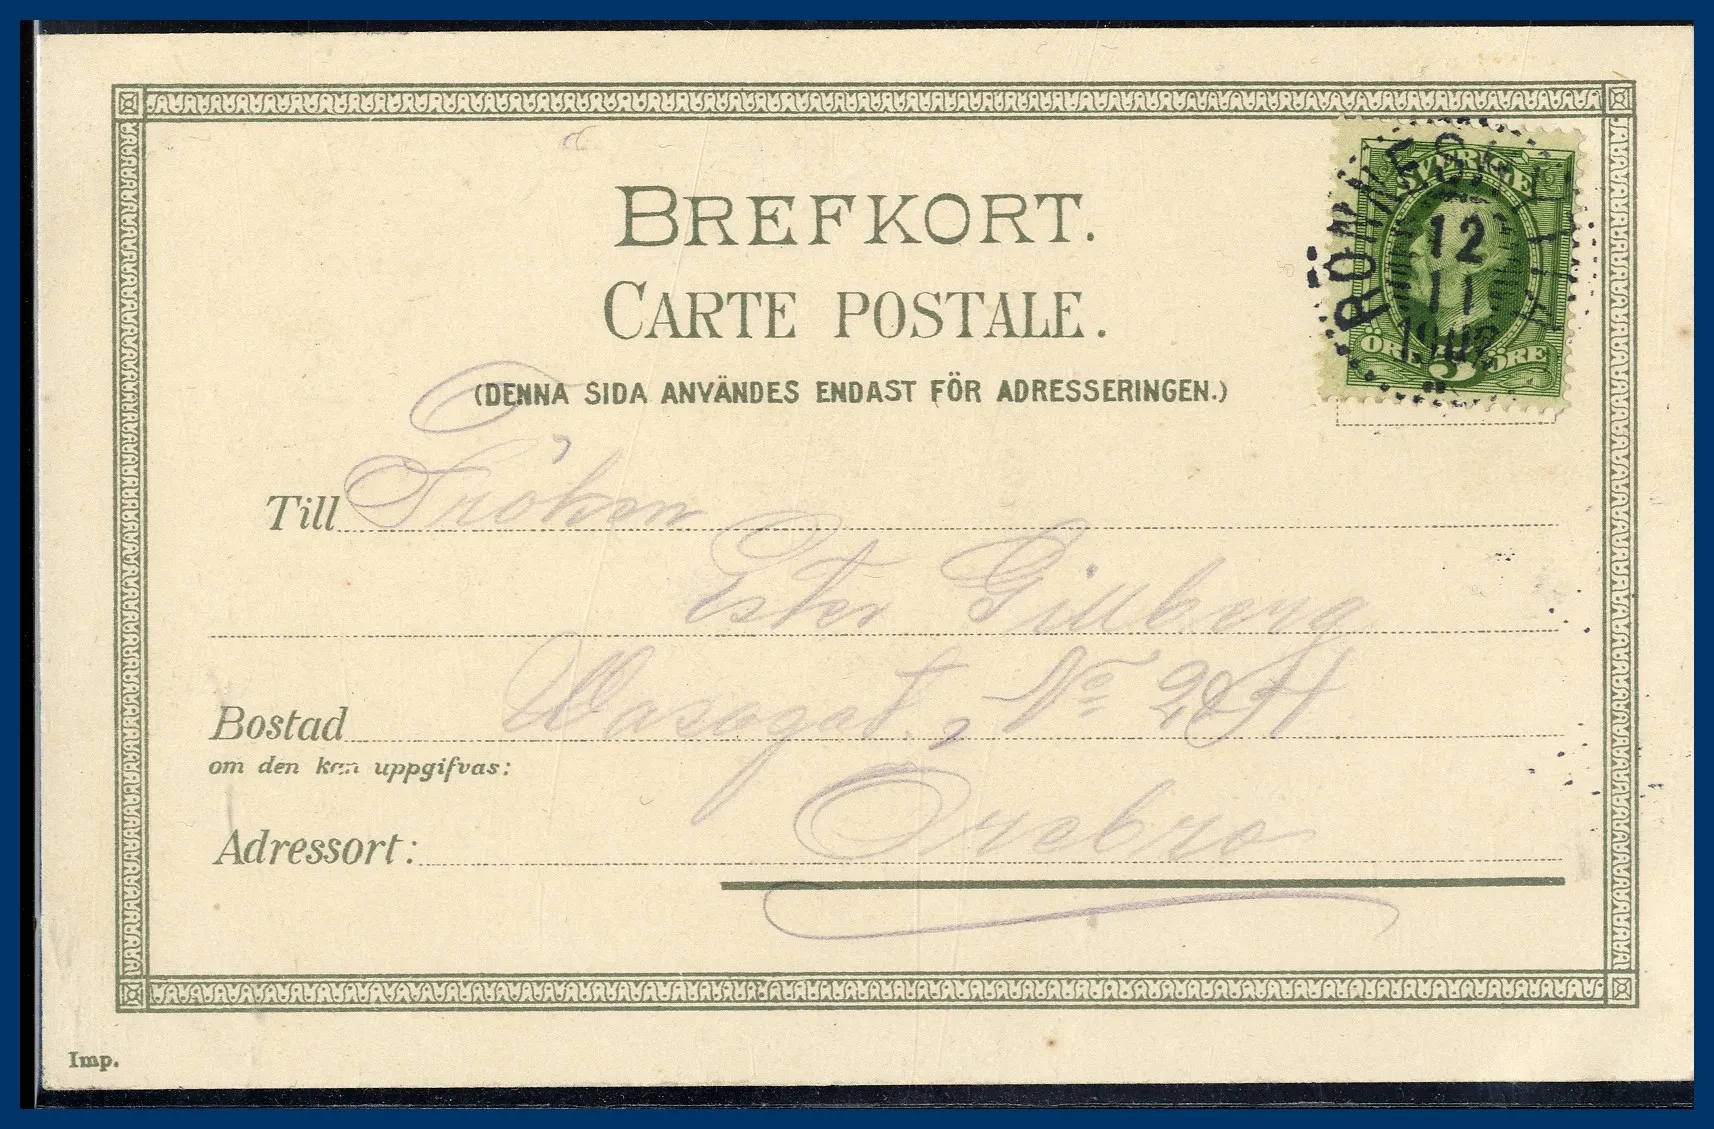 BREFKORT.
CARTE POSTALE.
(DENNA SIDA ANVÄNDES ENDAST FÖR ADRESSERINGEN.)
SVERIGE
12
11
1902
5
ÖRE
Till Fröken
Ester Gillberg
Bostad Wasagat. No
om den kan uppgifvas:
Adressort: Örebro
Imp.